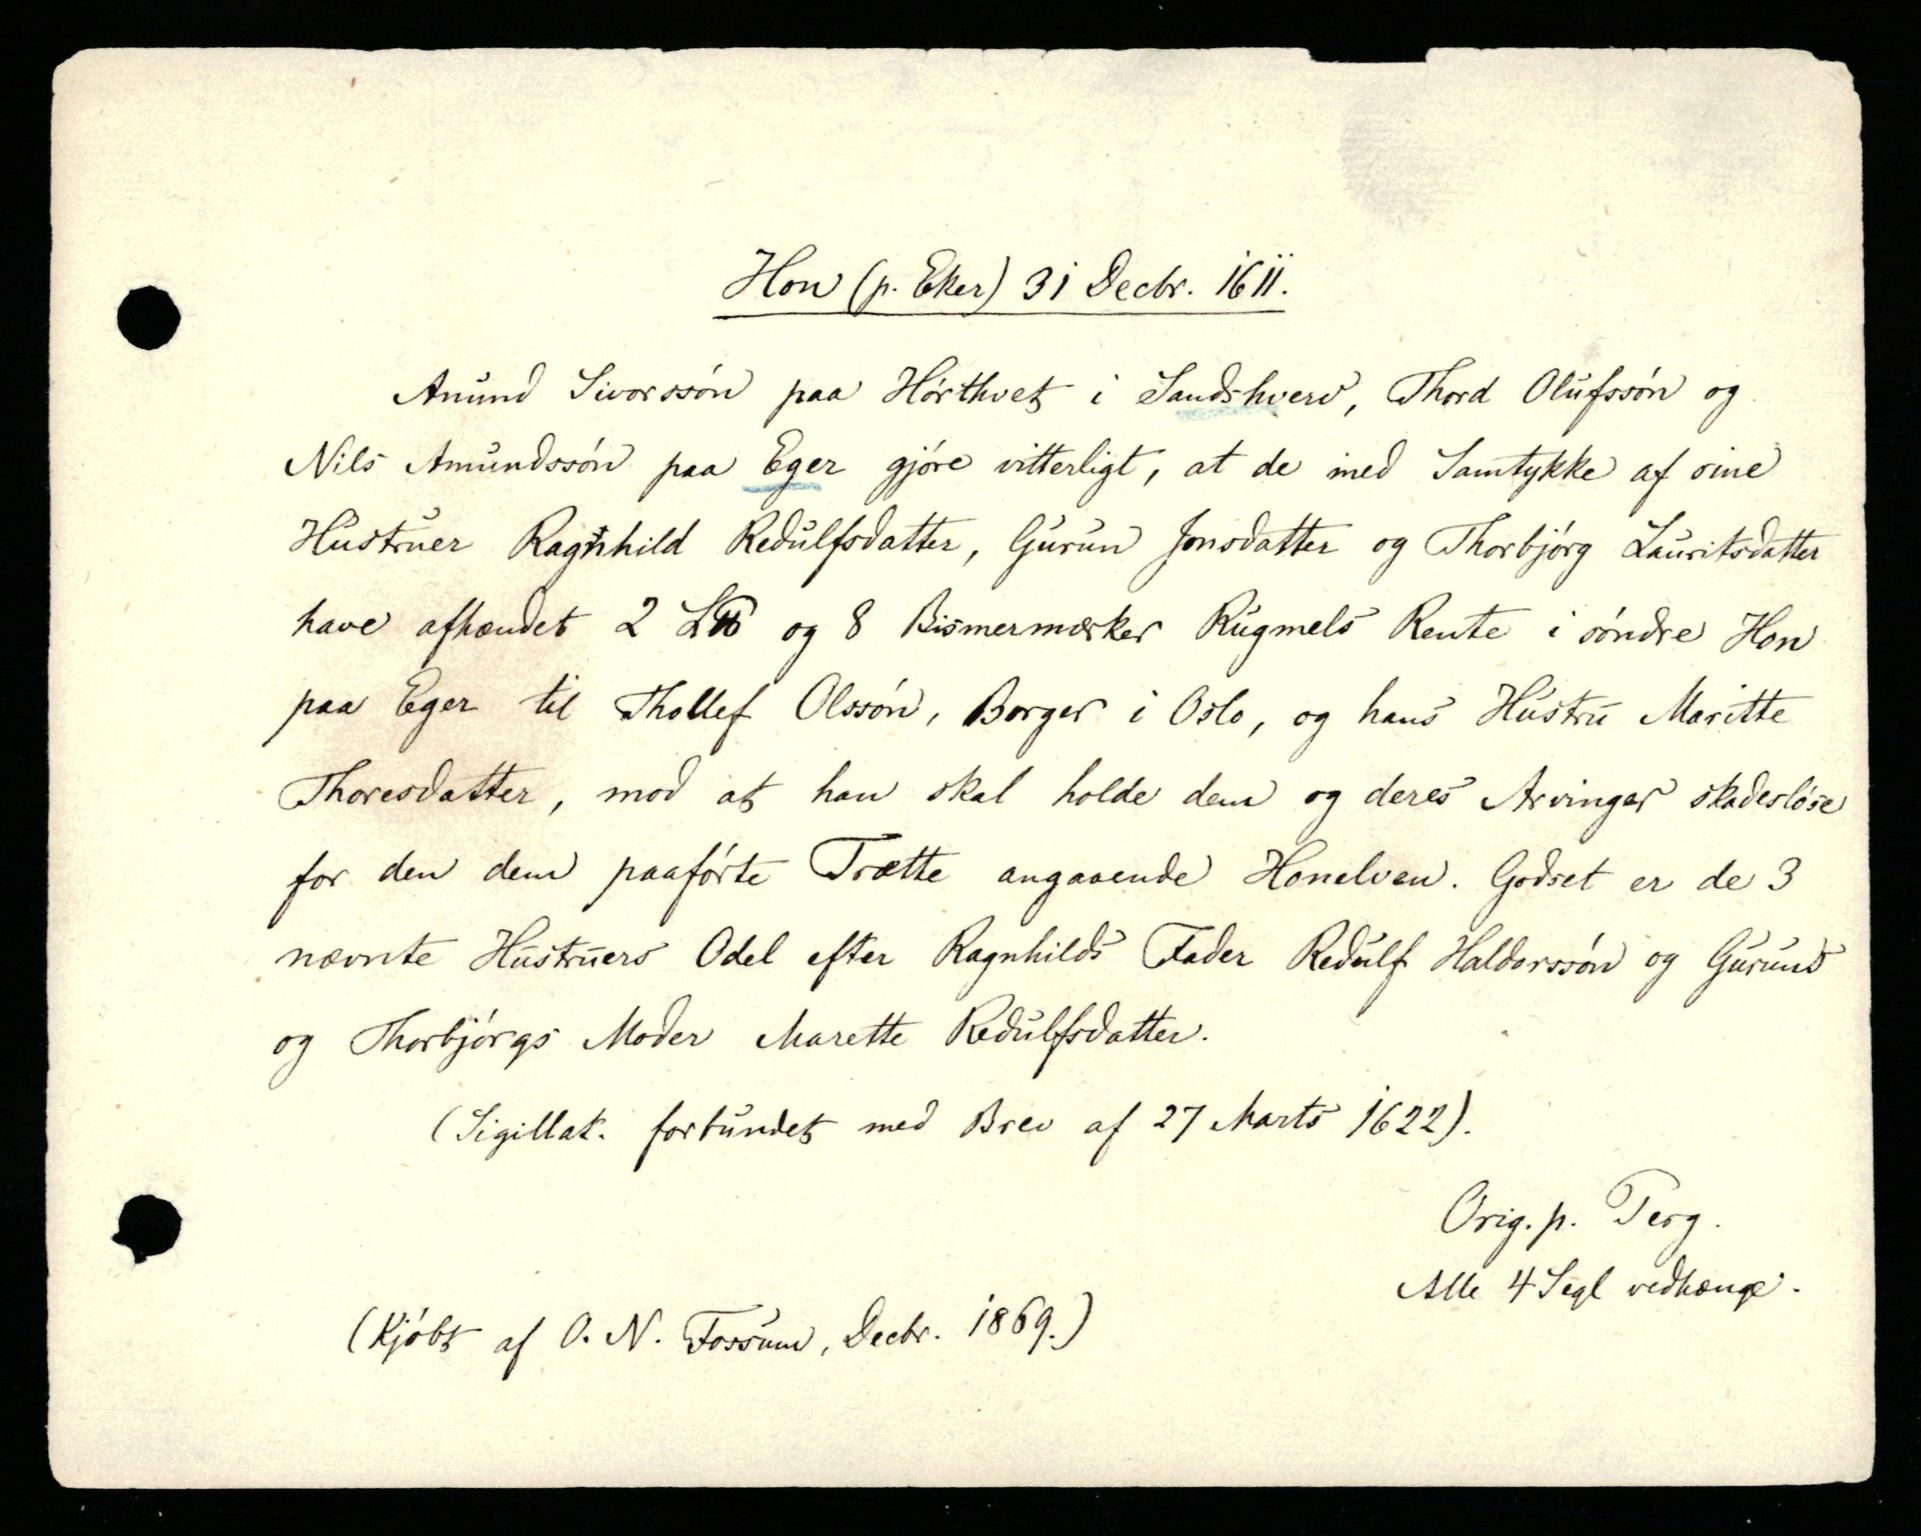 Hon (p. Eker) 31 Decbr. 1611.
Anund Sivorssön paa Hörthvet i Sandshverv, Thord Olufssön og
Nils Amundssön paa Eger gjöre vitterligt, at de med Samtykke af sine
Hustruer Ragnhild Redulfsdatter, Gurun Jonsdatter og Thorbjörg Lauritsdatter
have afhændet 2 L℔ og 8 Bismermærker Rugmels Rente i söndre Hon
paa Eger til Thollef Olssön, Borger i Oslo, og hans Hustru Maritte
Thoresdatter, mod at han skal holde dem og deres Arvinger skadeslöse
for den dem paaförte Trætte angaaende Honelven. Godset er de 3
nævnte Hustruers Odel efter Ragnhilds Fader Redulf Haldorssön og Guruns
og Thorbjörgs Moder Marette Redulfsdatter.
(Sigillat. forbundet med Brev af 27 Marts 1622).
Orig. p. Perg.
Alle 4 Segl vedhænge.
(Kjöbt af O. N. Fossum, Decbr. 1869.)